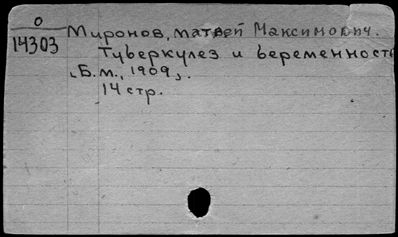 О
14303
Миронов, Матвей Максимович.
Туберкулез и беременность
[Б.м., 1909].
14 стр.